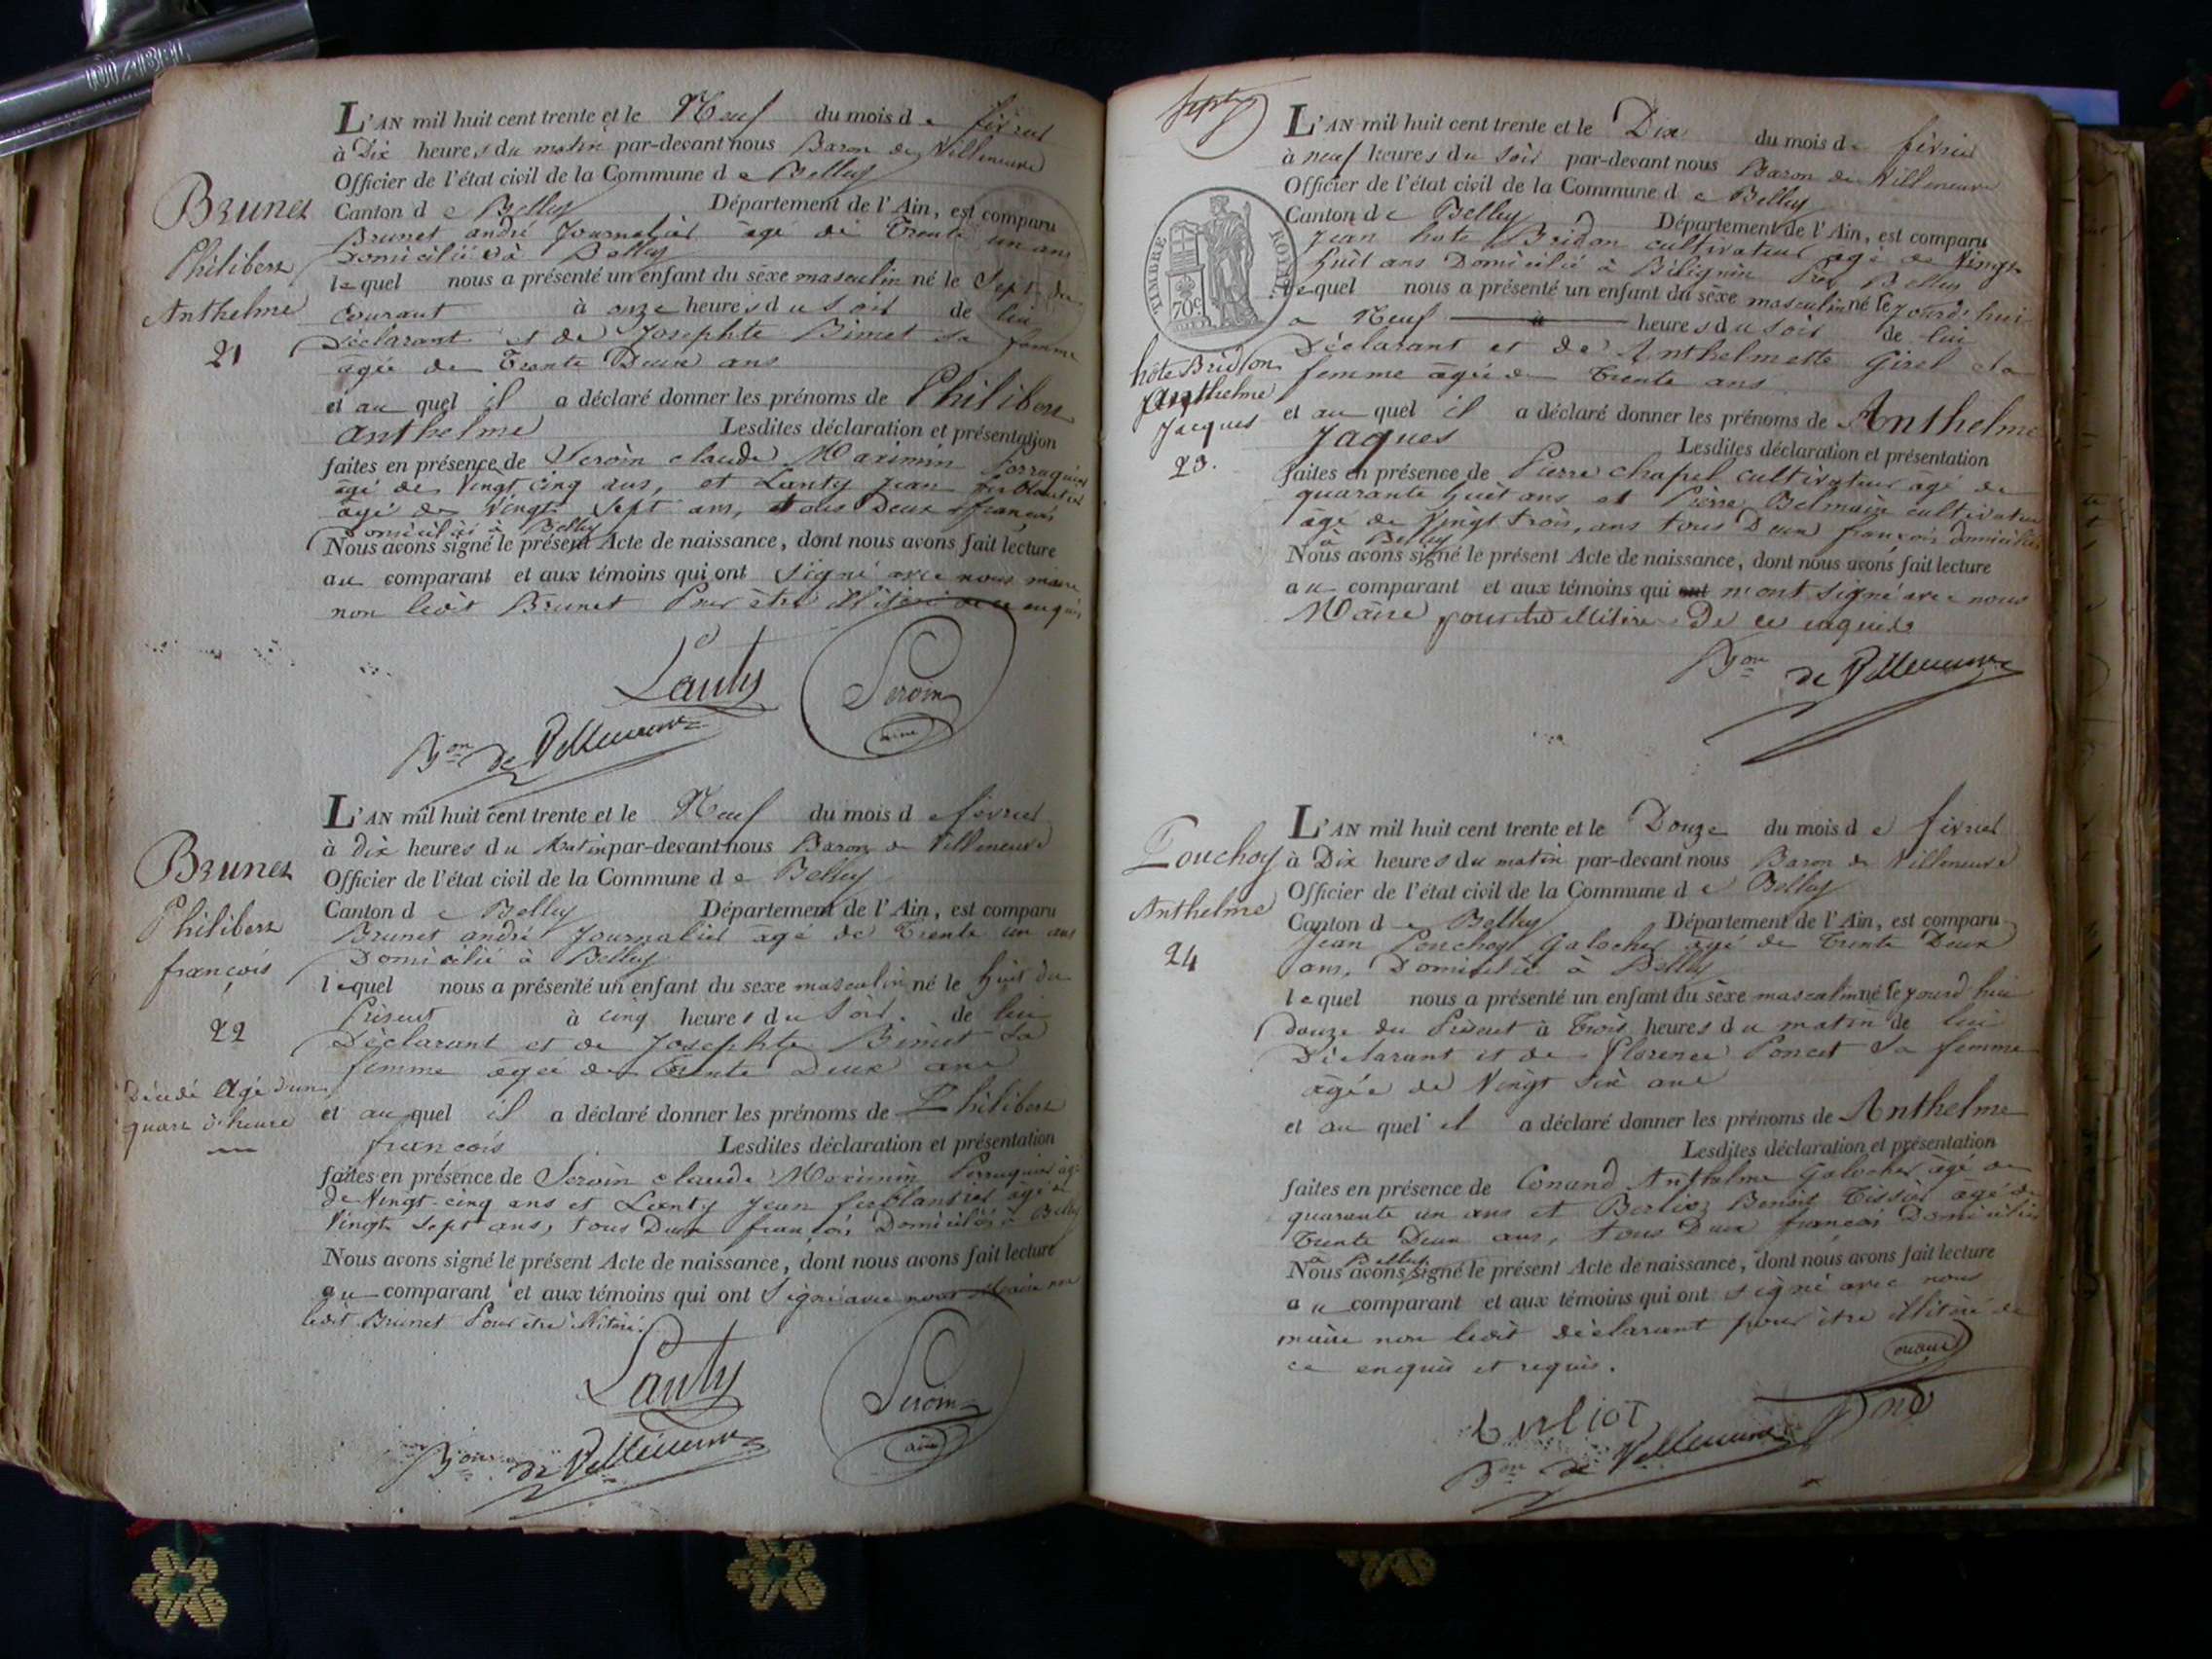 L'AN mil huit cent trente et le Neuf du mois de février
à Dix heures du matin par-devant nous Baron de Villeneuve
Officier de l'état civil de la Commune de Belley
Canton de Belley Département de l'Ain, est comparu
Brunet andré Journalier âgé de Trente un ans
Domicilié à Belley
lequel nous a présenté un enfant du sèxe masculin né le Sept du
Courant à onze heures du Soir de lui
Déclarant et de Josephte Bimet sa femme
âgée de Trente Deux ans
et au quel il a déclaré donner les prénoms de Philibert
Anthelme Lesdites déclaration et présentation
faites en présence de Seroin claude Maximin Perruquier
âgé de Vingt cinq ans, et Lanty Jean ferblantier
âgé de Vingt Sept ans, tous Deux français
Domiciliés à Belley
Nous avons signé le présent Acte de naissance, dont nous avons fait lecture
au comparant et aux témoins qui ont Signé avec nous maire
non ledit Brunet Pour être illitéré de ce enquis
Brunet
Philibert
Anthelme
21
Lanty
Seroin
ainé
Bon de Villeneuve
L'AN mil huit cent trente et le Neuf du mois de février
à Dix heures du Matin par-devant nous Baron de Villeneuve
Officier de l'état civil de la Commune de Belley
Canton de Belley Département de l'Ain, est comparu
Brunet andré Journalier âgé de Trente un ans
Domicilié à Belley
lequel nous a présenté un enfant du sexe masculin né le huit du
Présent à cinq heures du Soir. de lui
Déclarant et de Josephte Bimet Sa
femme âgée de Trente Deux ans
et au quel il a déclaré donner les prénoms de Philibert
françois Lesdites déclaration et présentation
faites en présence de Seroin claude Maximin Perruquier âgé
de Vingt-cinq ans et Lanty Jean ferblantier âgé de
Vingt Sept ans, tous Deux français Domiciliés à Belley
Nous avons signé le présent Acte de naissance, dont nous avons fait lecture
au comparant et aux témoins qui ont Signé avec nous Maire non
ledit Brunet Pour être illitéré.
Brunet
Philibert
françois
22
Décédé Agé d'un
quart d'heure
Lanty
Seroin
ainé
Bon de Villeneuve
Sept
TIMBRE ROYAL
70c
L'AN mil huit cent trente et le Dix du mois de février
à neuf heures du Soir par-devant nous Baron de Villeneuve
Officier de l'état civil de la Commune de Belley
Canton de Belley Département de l'Ain, est comparu
Jean hote Bridon cultivateur âgé de Vingt
huit ans Domicilié à Bilignin Près Belley
lequel nous a présenté un enfant du sèxe masculin né le Jourd'hui
a Neuf heures du Soir de lui
Déclarant et de Anthelmette Girel Sa
femme âgée de Trente ans
et au quel il a déclaré donner les prénoms de Anthelme
Jaques Lesdites déclaration et présentation
faites en présence de Pierre chapel cultivateur âgé de
quarante huit ans et Pierre Belmain cultivateur
âgé de Vingt trois, ans tous Deux français domiciliés
à Belley
Nous avons signé le présent Acte de naissance, dont nous avons fait lecture
au comparant et aux témoins qui ont n'ont Signé avec nous
Maire pour être illitéré De ce enquis
hôte Bridon
Anthelme
Jacques
23.
Bon de Villeneuve
L'AN mil huit cent trente et le Douze du mois de février
à Dix heures du matin par-devant nous Baron de Villeneuve
Officier de l'état civil de la Commune de Belley
Canton de Belley Département de l'Ain, est comparu
Jean Ponchoy Galocher âgé de Trente Deux
ans, Domicilié à Belley
lequel nous a présenté un enfant du sèxe masculin né le jourd'hui
douze du Présent à Trois heures du matin de lui
Déclarant et de Florence Poncet Sa femme
âgée de Vingt Six ans
et au quel il a déclaré donner les prénoms de Anthelme
Lesdites déclaration et présentation
faites en présence de Conand Anthelme Galocher âgé de
quarante un ans et Berlioz Benoit Tissier âgé de
Trente Deux ans, tous Deux français Domiciliés
à Belley
Nous avons signé le présent Acte de naissance, dont nous avons fait lecture
au comparant et aux témoins qui ont signé avec nous
maire non ledit déclarant pour être illitéré de
ce enquis et requis.
Ponchoy
Anthelme
24
Bon de Villeneuve